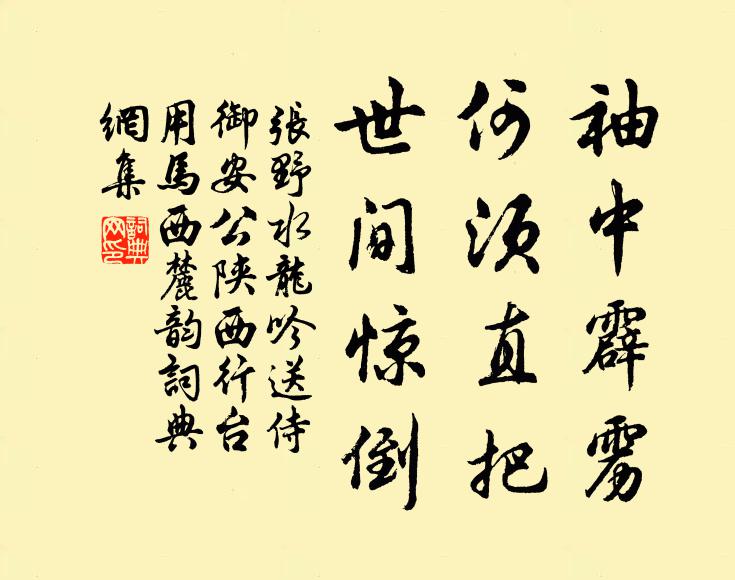 袖中霹雳
何须直把
世间惊倒
張野水龍吟送侍
御安公陕西行台
用馬西麓韵詞典
網集
詞典
网印